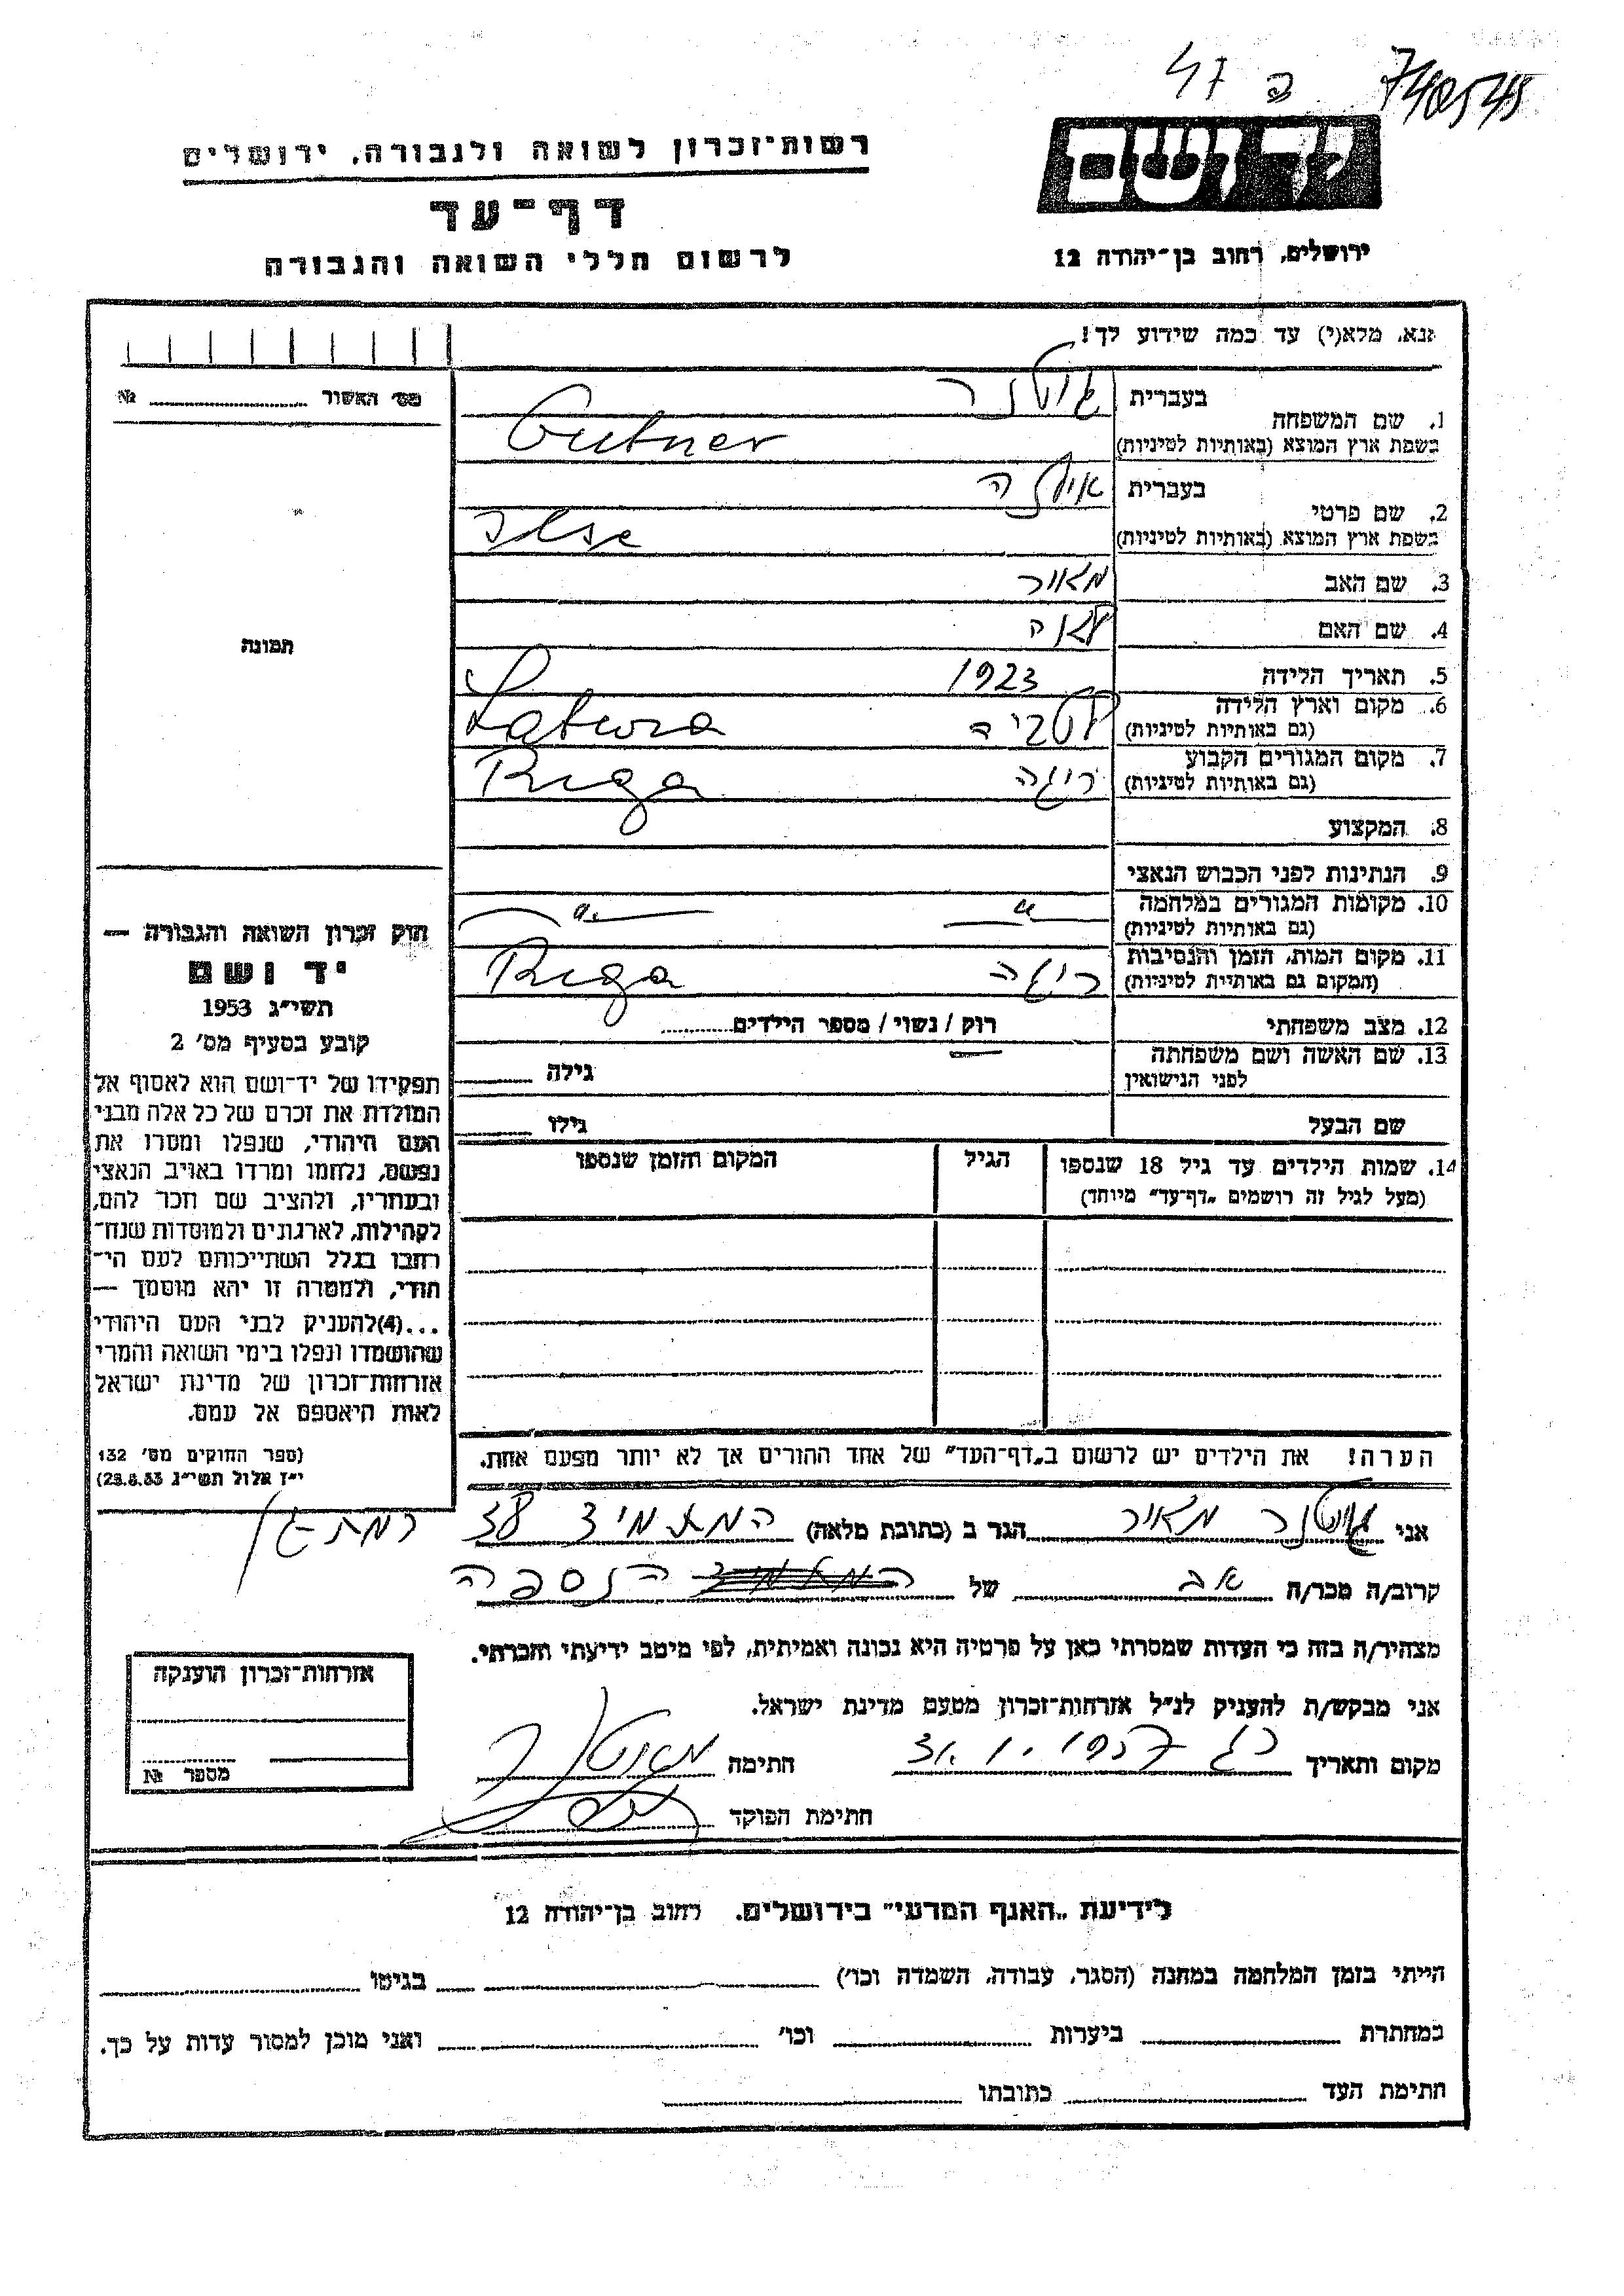 740545
רשות־זכרון לשואה ולגבורה, ירושלים
דף־עד
לרשום חללי השואה והגבורה
יד ושם
ירושלים, רחוב בן־יהודה 12
נא, מלא(י) עד כמה שידוע לך!
מס׳ האשור № ........
1. שם המשפחה בעברית גוטנר
בשפת ארץ המוצא (באותיות לטיניות) Gutner
2. שם פרטי בעברית אילזה
בשפת ארץ המוצא (באותיות לטיניות) Ilse
3. שם האב מאיר
4. שם האם
5. תאריך הלידה 1923
6. מקום וארץ הלידה (גם באותיות לטיניות) לטביה Latwia
7. מקום המגורים הקבוע (גם באותיות לטיניות) ריגה Riga
8. המקצוע
9. הנתינות לפני הכבוש הנאצי
10. מקומות המגורים במלחמה (גם באותיות לטיניות) — " — — " —
11. מקום המות, הזמן והנסיבות (המקום גם באותיות לטיניות) ריגה Riga
12. מצב משפחתי רוק / נשוי / מספר הילדים........
13. שם האשה ושם משפחתה לפני הנישואין גילה
שם הבעל גילו
14. שמות הילדים עד גיל 18 שנספו (מעל לגיל זה רושמים „דף־עד״ מיוחד)
הגיל
המקום והזמן שנספו
תמונה
חוק זכרון השואה והגבורה —
יד ושם
תשי״ג 1953
קובע בסעיף מס׳ 2
תפקידו של יד־ושם הוא לאסוף אל
המולדת את זכרם של כל אלה מבני
העם היהודי, שנפלו ומסרו את
נפשם, נלחמו ומרדו באויב הנאצי
ובעוזריו, ולהציב שם וזכר להם,
לקהילות, לארגונים ולמוסדות שנח־
רחבו בגלל השתייכותם לעם הי־
הודי, ולמטרה זו יהא מוסמך —
...(4)להעניק לבני העם היהודי
שהושמדו ונפלו בימי השואה והמרי
אזרחות־זכרון של מדינת ישראל
לאות היאספם אל עמם.
(ספר החוקים מס׳ 132
י״ז אלול תשי״ג 28.8.53)
הערה! את הילדים יש לרשום ב„דף־העד״ של אחד ההורים אך לא יותר מפעם אחת.
אני גוטנר מאיר הגר ב (כתובת מלאה) המתמיד 38 רמת גן
קרוב/ה מכר/ה אב של הנספה
מצהיר/ה בזה כי העדות שמסרתי כאן על פרטיה היא נכונה ואמיתית, לפי מיטב ידיעתי והכרתי.
אני מבקש/ת להעניק לנ״ל אזרחות־זכרון מטעם מדינת ישראל.
מקום ותאריך רג 31.1.1957 חתימה
חתימת הפוקד
אזרחות־זכרון הוענקה
מספר №
לידיעת „האגף המדעי״ בירושלים, רחוב בן־יהודה 12
הייתי בזמן המלחמה במחנה (הסגר, עבודה, השמדה וכו׳) בגיטו
במחתרת ביערות וכו׳ ואני מוכן למסור עדות על כך.
חתימת העד כתובתו